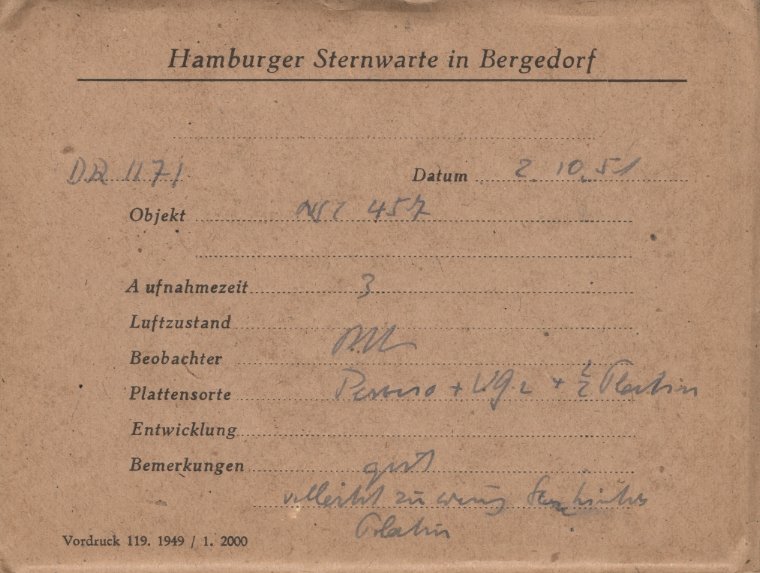 Hamburger Sternwarte in Bergedorf
DR 1171 Datum 2.10.51
Objekt NGC 457
Aufnahmezeit 3
Luftzustand
Beobachter
Plattensorte + + ½ Platin
Entwicklung
Bemerkungen gut
vielleicht zu wenig
Platin
Vordruck 119. 1949 / 1. 2000